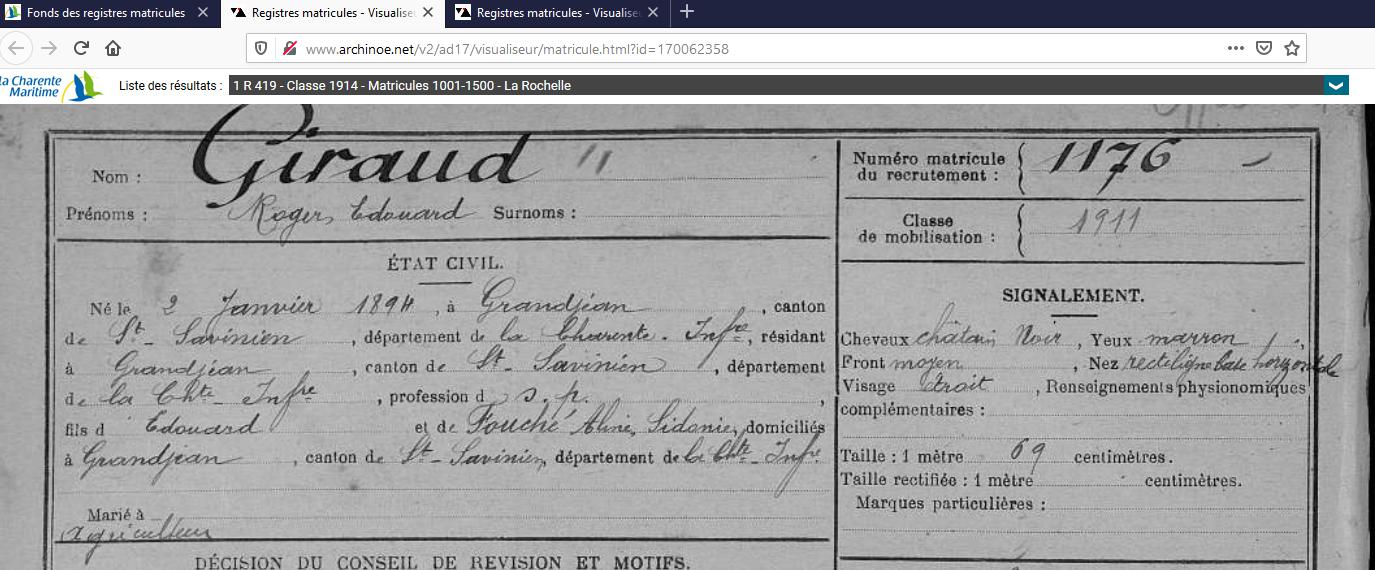 Fonds des registres matricules
Registres matricules - Visualise
Registres matricules - Visualise
www.archinoe.net/v2/ad17/visualiseur/matricule.html?id=170062358
La Charente
Maritime
Liste des résultats : 1 R 419 - Classe 1914 - Matricules 1001-1500 - La Rochelle
Nom : Giraud
Prénoms : Roger, Edouard Surnoms :
ÉTAT CIVIL.
Né le 2 Janvier 1894, à Grandjean, canton
de St-Savinien, département de la Charente-Infre, résidant
à Grandjean, canton de St-Savinien, département
de la Chte-Infre, profession d s.p.,
fils d Edouard et de Fouché Aline, Sidonie, domiciliés
à Grandjean, canton de St-Savinien, département de la Chte-Infre
Marié à
agriculteur
DÉCISION DU CONSEIL DE REVISION ET MOTIFS.
Numéro matricule
du recrutement : 1176
Classe
de mobilisation : 1911
SIGNALEMENT.
Cheveux châtain Noir, Yeux marron,
Front moyen, Nez rectiligne base horizontale
Visage étroit, Renseignements physionomiques
complémentaires :
Taille : 1 mètre 69 centimètres.
Taille rectifiée : 1 mètre centimètres.
Marques particulières :